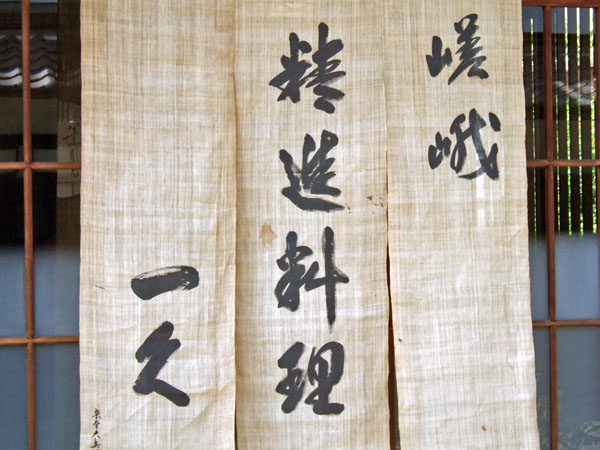 嵯峨
精進料理
一久